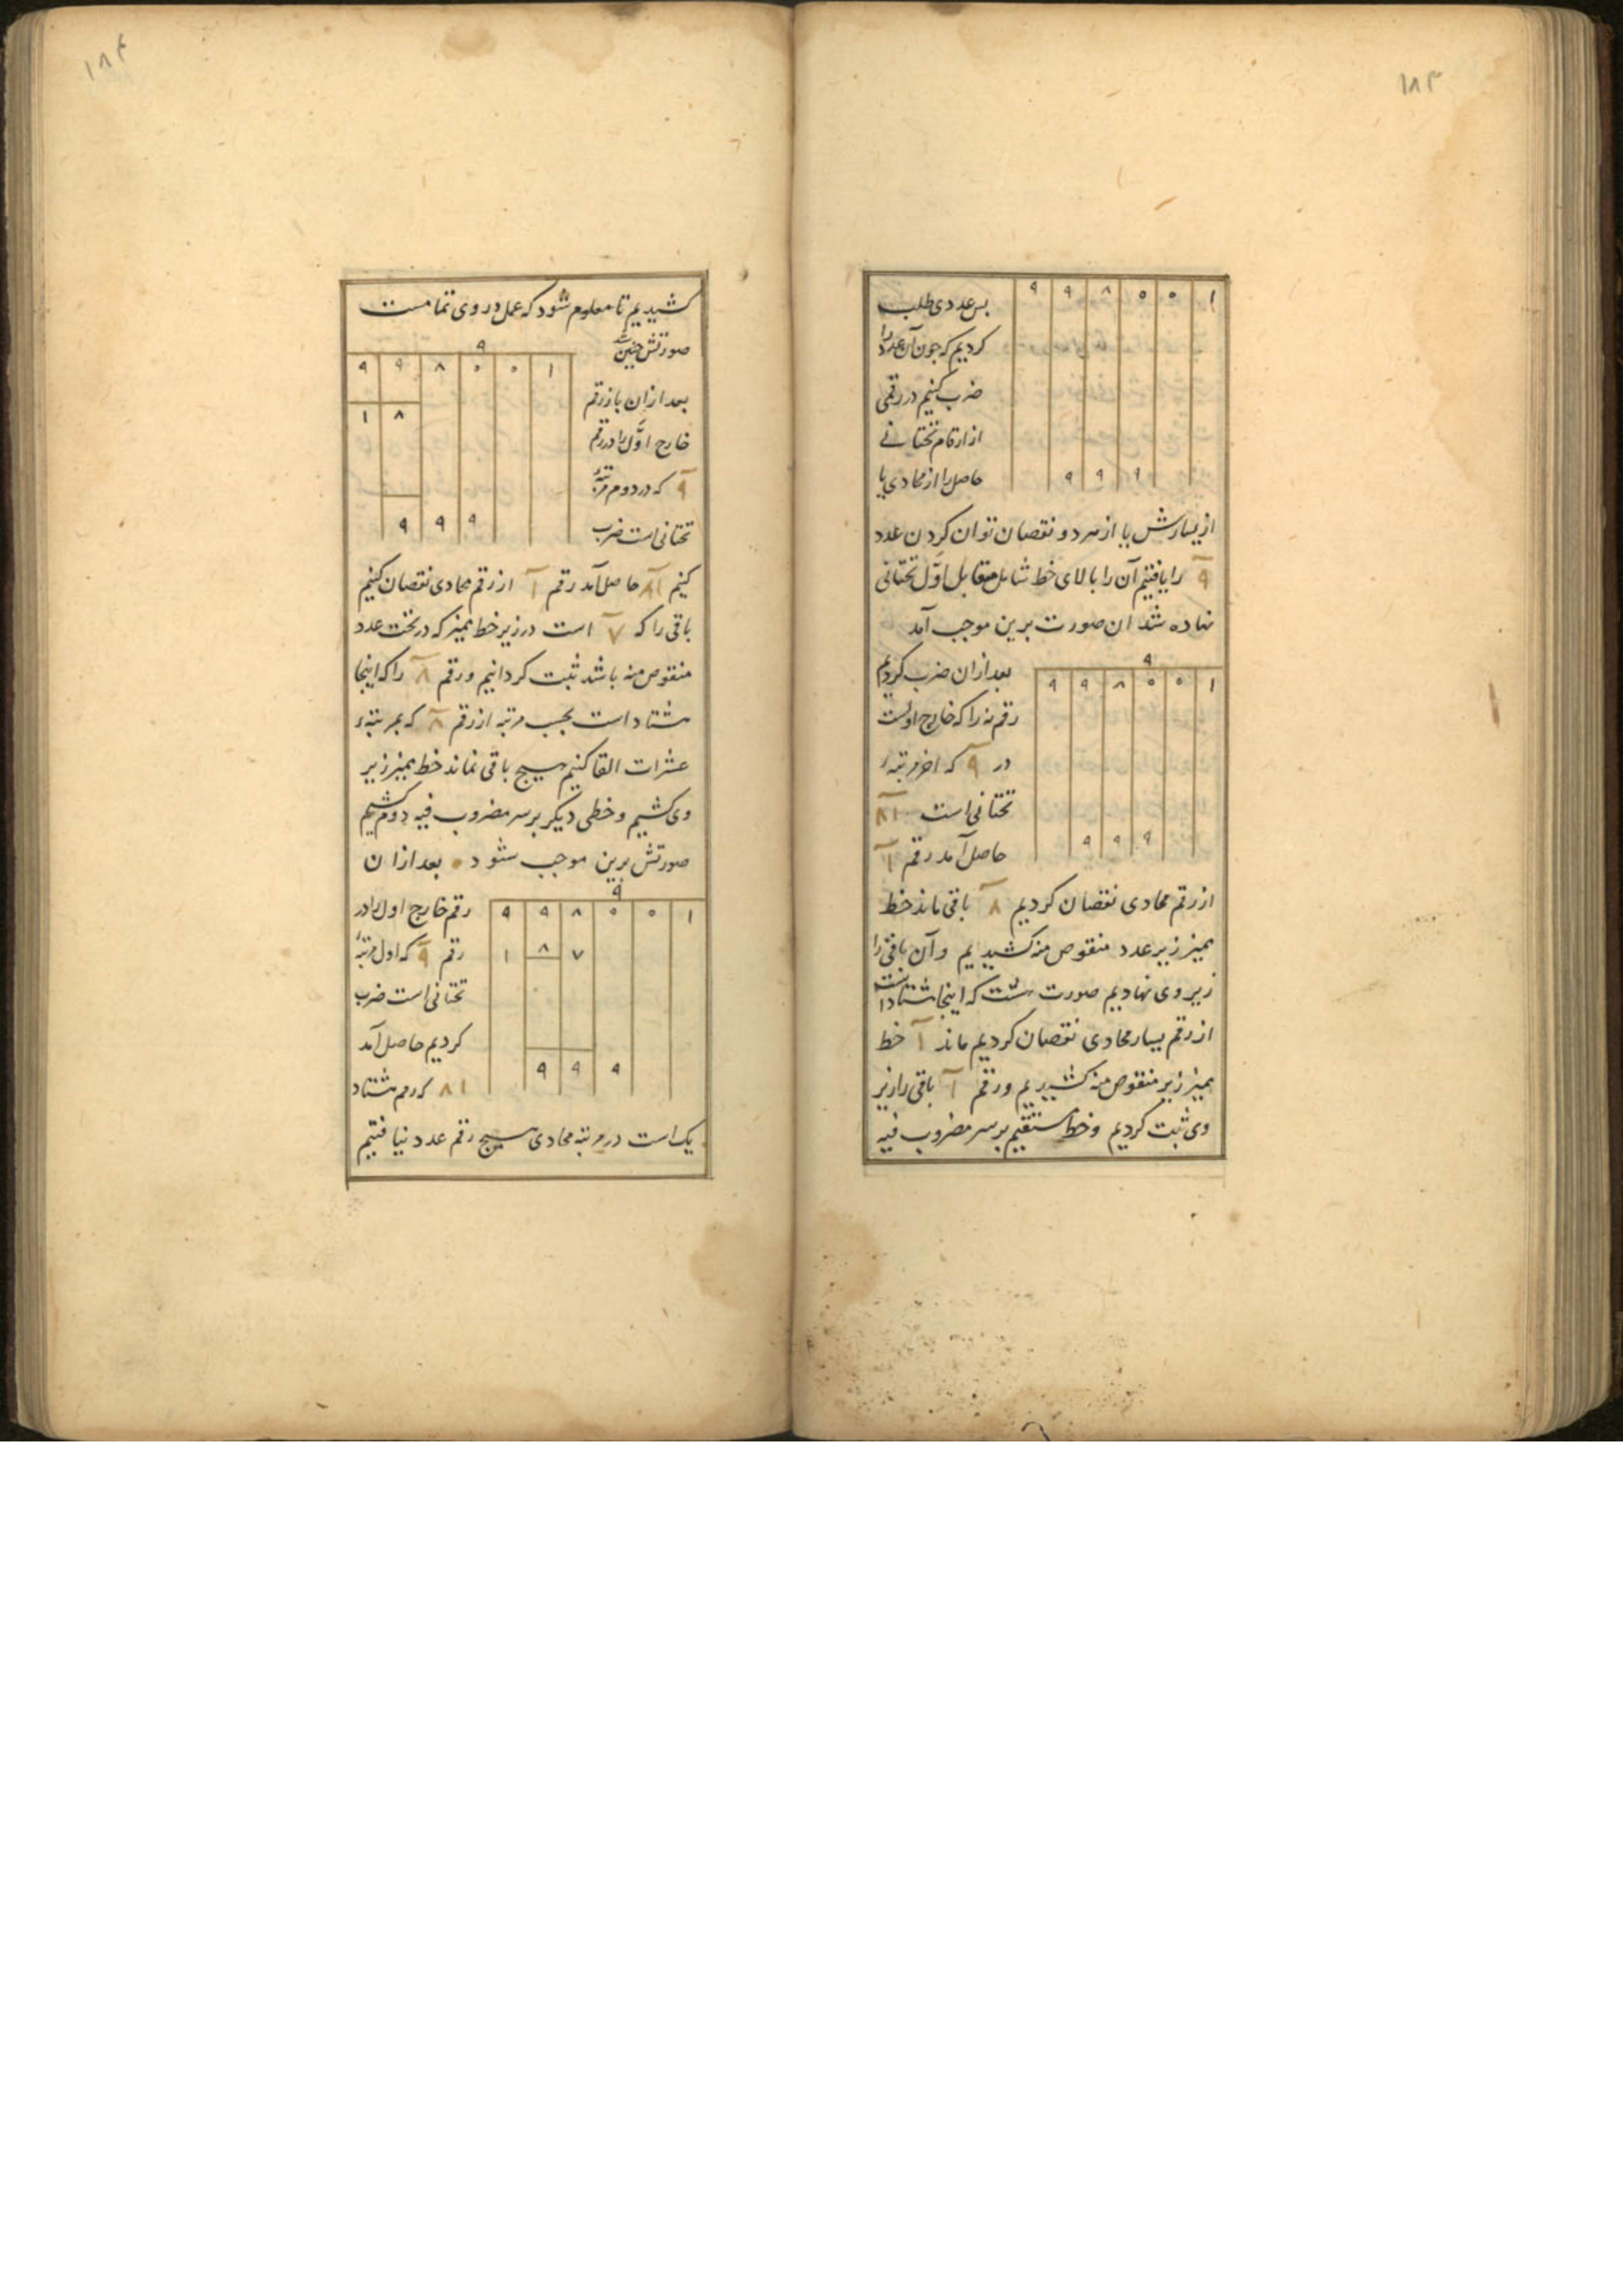 ۱۸۳
۹ ۹ ۸ ۰ ۰ ۱
بس عددی طلب
کردیم که جون آن عدد را
ضرب کنیم در رقمی
از ارقام تختانے
حاصل را از محاذی یا
۹ ۹ ۹
از یسارش یا از هر دو نقصان توان کردن عدد
۹ را یافتیم آن را بالای خط شامل مقابل اوّل تختانی
نهاده شد ان صورت برین موجب آمد
۹
۹ ۹ ۸ ۰ ۰ ۱
بعد ازان ضرب کردیم
رقم نه را که خارج اولست
در ۹ که اخر مرتبهٔ
تختانی است ۸۱
حاصل آمد رقم ۱
۹ ۹ ۹
از رقم محاذی نقصان کردیم ۸ باقی ماند خط
ممیز زیر عدد منقوص منه کشیدیم و آن باقی را
زیر وی نهادیم صورت هشت که اینجا هشتاد است
از رقم یسار محاذی نقصان کردیم ماند ۱ خط
ممیز زیر منقوص منه کشیدیم و رقم ۱ باقی را زیر
وی ثبت کردیم و خط مستقیم بر سر مضروب فیه
۱۸۴
کشیدیم تا معلوم شود که عمل در وی تمامست
صورتش چنین است
۹
۹ ۹ ۸ ۰ ۰ ۱
۱ ۸
بعد ازان باز رقم
خارج اوَّل را در رقم
۹ که در دوم مرتبهٔ
تختانی است ضرب
۹ ۹ ۹
کنیم ۸۱ حاصل آمد رقم ۱ از رقم محاذی نقصان کنیم
باقی را که ۷ است در زیر خط ممیز که در تحت عدد
منقوص منه باشد ثبت کردانیم و رقم ۸ را که اینجا
هشتاد است بحسب مرتبه از رقم ۸ که بمرتبهٔ
عشرات القا کنیم هیچ باقی نماند خط ممیز زیر
وی کشیم و خطی دیکر بر سر مضروب فیه دوم کشیم
صورتش برین موجب شود بعد ازان
۹
۹ ۹ ۸ ۰ ۰ ۱
۱ ۸ ۷
رقم خارج اول را در
رقم ۹ که اول مرتبهٔ
تختانی است ضرب
کردیم حاصل آمد
۹ ۹ ۹
۸۱ که رقم هشتاد
یک است در مرتبه محاذی هیچ رقم عدد نیافتیم